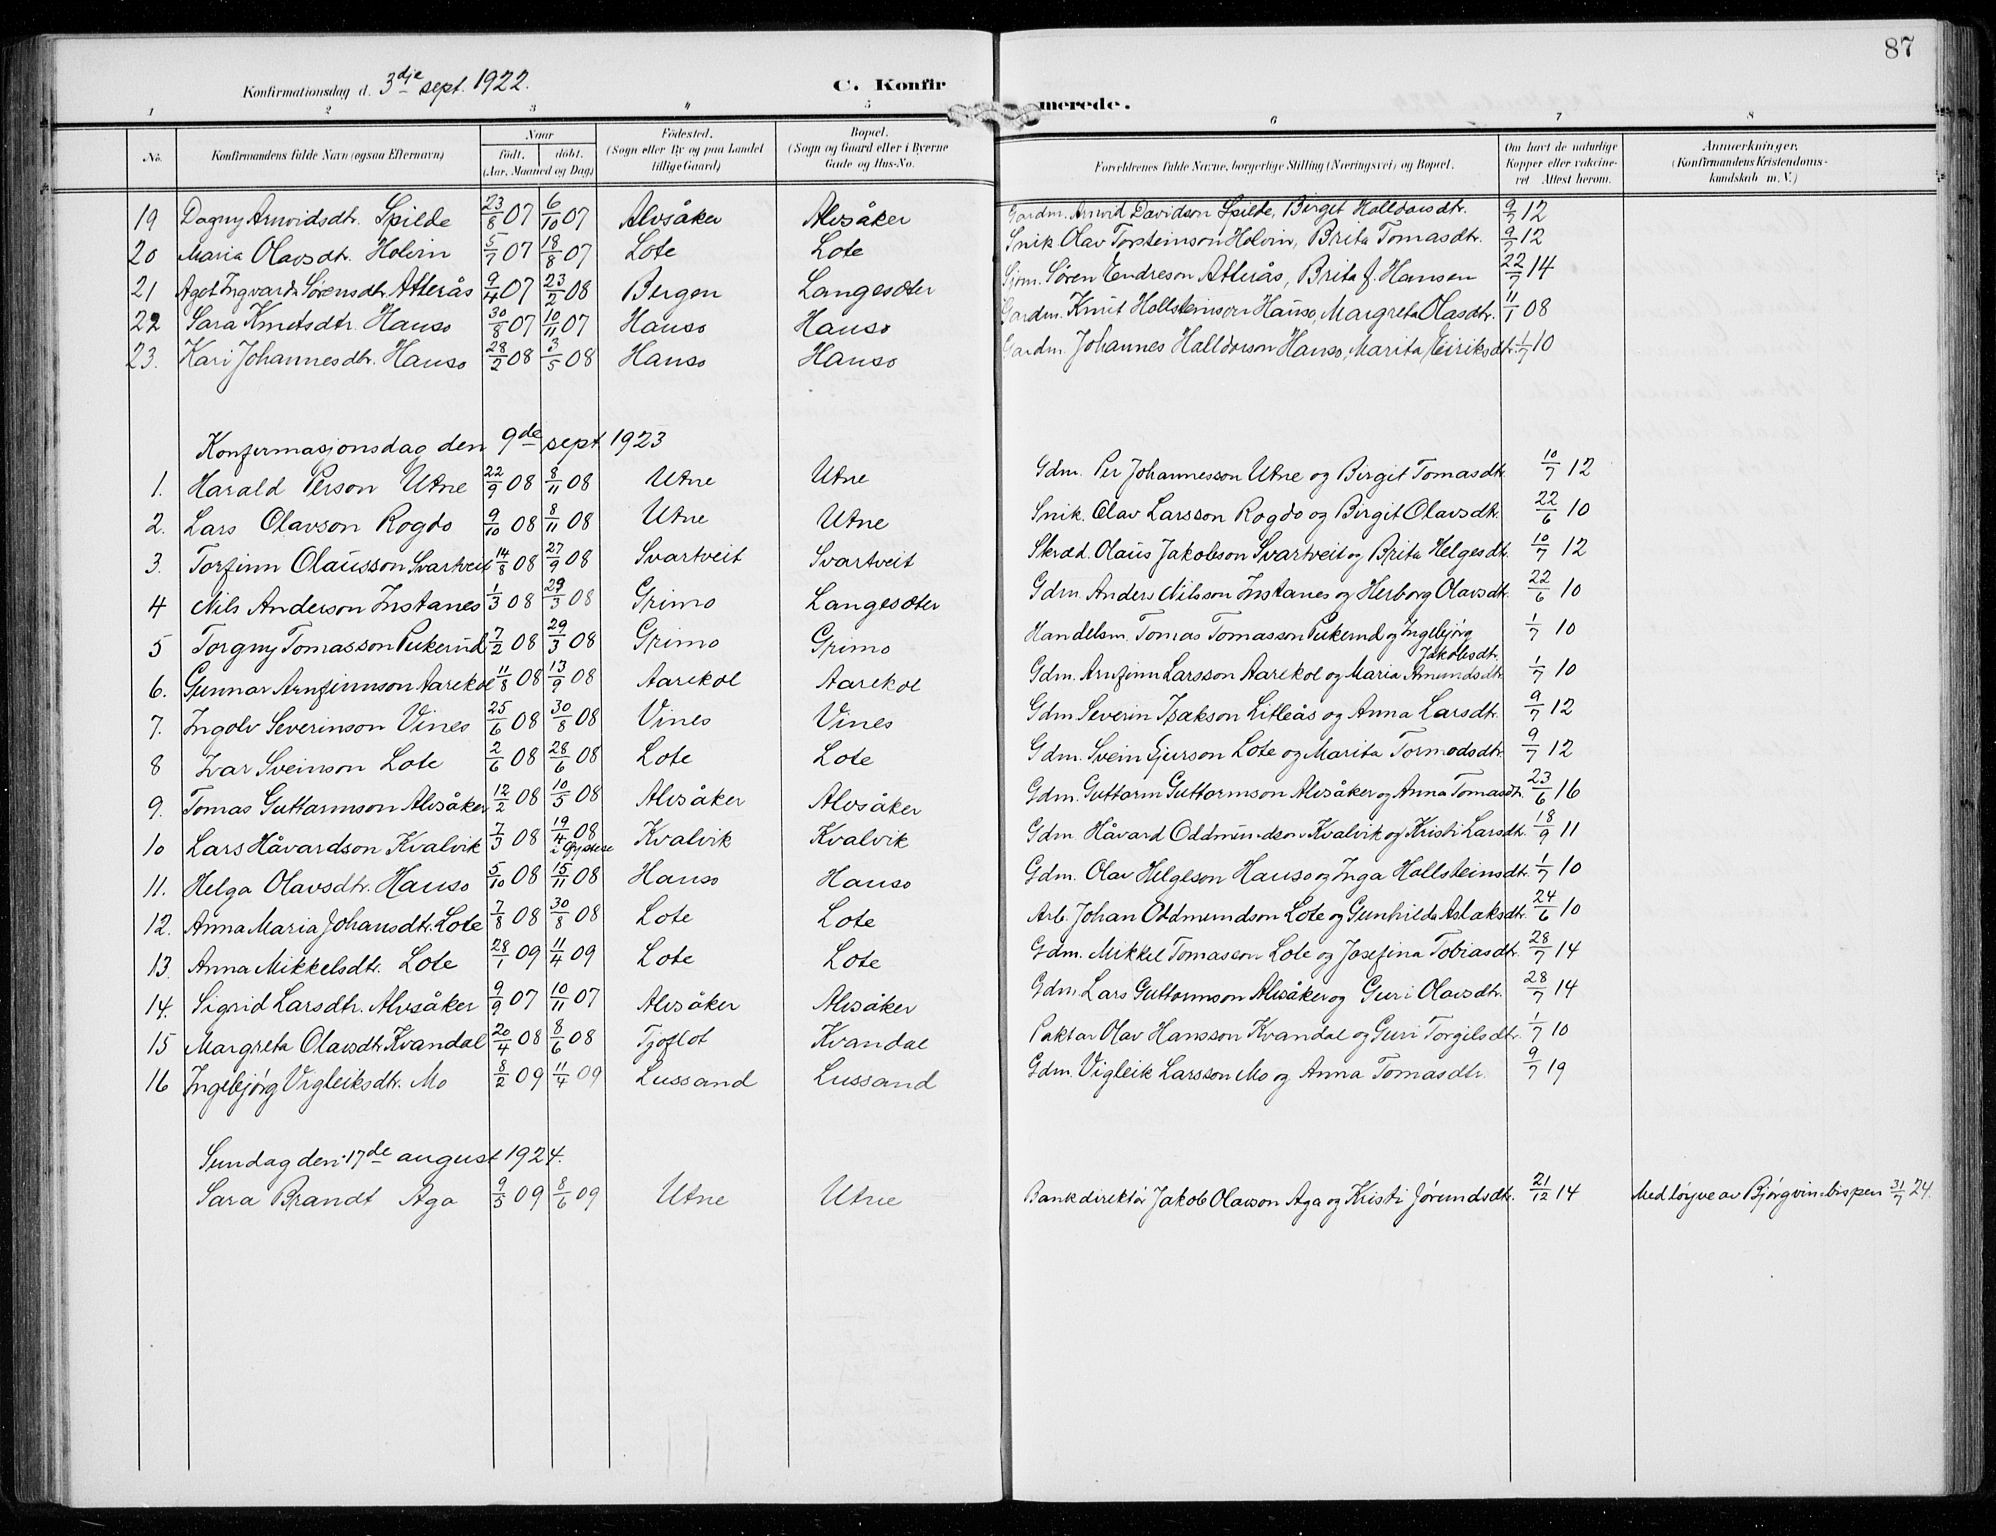 87
Konfirmationsdag d. 3die sept. 1922. C. Konfirmerede.
1 2 3 4 5 6 7 8
No. Konfirmandens fulde Navn (ogsaa Efternavn) Naar født. døbt. (Aar, Maaned og Dag) Fødested. (Sogn eller By og paa Landet tillige Gaard) Bopæl. (Sogn og Gaard eller i Byerne Gade og Hus-No. Forældrenes fulde Navne, borgerlige Stilling (Næringsvei) og Bopæl. Om havt de naturlige Kopper eller vaccineret Attest herom. Anmerkninger. (Konfirmandens Kristendomskundskab m. V.)
19 Dagny Arnvidsdtr. Spilde 23/8 07 6/10 07 Alvsåker Alvsåker Gardm. Arnvid Davidson Spilde, Birget Halldorsdtr. 9/7 12
20 Maria Olavsdtr. Holvin 5/7 07 18/8 07 Lote Lote Snik Olav Torsteinson Holvin, Brita Tomasdtr. 9/7 12
21 Agot Ingvarda Sørensdtr. Atlerås 9/4 07 23/2 08 Bergen Langesæter Sjøm. Søren Endreson Atlerås, Brita f. Hansen 22/7 14
22 Sara Knutsdtr. Hauso 30/8 07 10/11 07 Hauso Hauso Gardm. Knut Hallsteinson Hauso, Margreta Olasdtr. 11/1 08
23. Kari Johannesdtr. Hauso 28/2 08 3/5 08 Hauso Hauso Gardm. Johannes Halldorson Hauso, Marita Eiriksdtr. 1/7 10
Konfirmasjonsdag den 9de sept. 1923
1. Harald Person Utne 22/9 08 8/11 08 Utne Utne Gdm. Per Johannesson Utne og Birgit Tomasdtr 10/7 12
2. Lars Olavson Rogdo 9/10 08 8/11 08 Utne Utne Snik. Olav Larsson Rogdo og Birgit Olavsdtr. 22/6 10
3. Torfinn Olausson Svartveit 14/8 08 27/9 08 Svartveit Svartveit Skræd. Olaus Jakobson Svartveit og Brita Helgesdtr. 10/7 12
4 Nils Anderson Instanes 1/3 08 29/3 08 Grimo Langesæter Gdm Anders Nilsson Instanes og Herborg Olavsdtr. 22/6 10
5 Torgny Tomasson Pukerud 7/2 08 29/3 08 Grimo Grimo Handelsm. Tomas Tomasson Pukerud og Ingebjørg Jakobsdtr. 1/7 10
6. Gunnar Arnfinnson Aarekol 11/8 08 13/9 08 Aarekol Aarekol Gdm. Arnfinn Larsson Aarekol og Maria Amundsdtr 1/7 10
7. Ingolv Severinson Vines 25/6 08 30/8 08 Vines Vines Gdm. Severin Isakson Litleås og Anna Larsdtr. 9/7 12
8 Ivar Sveinson Lote 2/6 08 28/6 08 Lote Lote Gdm. Svein Gjurson Lote og Marita Tormodsdtr. 9/7 12
9. Tomas Guttormson Alvsåker 12/2 08 10/5 08 Alvsåker Alvsåker Gdm. Guttorm Guttormson Alvsåker og Anna Tomasdtr. 23/6 16
10 Lars Håvardson Kvalvik 7/3 08 19/4 08 i Øystese Kvalvik Kvalvik Gdm Håvard Oddmundson Kvalvik og Kristi Larsdtr. 18/9 11
11. Helga Olavsdtr. Hauso 5/10 08 15/11 08 Hauso Hauso Gdm. Olav Helgeson Hauso og Inga Hallsteinsdtr. 1/7 10
12. Anna Maria Johansdtr. Lote 7/8 08 30/8 08 Lote Lote Arb. Johan Oddmundson Lote og Gunhilda Aslaksdtr. 24/6 10
13. Anna Mikkelsdtr. Lote 28/1 09 11/4 09 Lote Lote Gdm. Mikkel Tomasson Lote og Josefina Tobiasdtr. 28/7 14
14. Sigrid Larsdtr. Alvsåker 9/9 07 10/11 07 Alvsåker Alvsåker Gdm. Lars Guttormson Alvsåker og Guri Olavsdtr. 28/7 14
15 Margreta Olavsdtr. Kvandal 20/4 08 8/6 08 Tjoflot Kvandal Paktar Olav Hansson Kvandal og Guri Torgilsdtr. 1/7 10
16 Ingebjørg Vigleiksdtr. Mo 8/2 09 11/4 09 Lussand Lussand Gdm. Vigleik Larsson Mo og Anna Tomasdtr. 9/7 19
Sundag den 17de august 1924.
Sara Brandt Aga 9/5 09 8/6 09 Utne Utne Bankdirektør Jakob Olavson Aga og Kristi Jørundsdtr. 21/12 14 Med løyve av Bjørgvin-bispen 31/7 24.